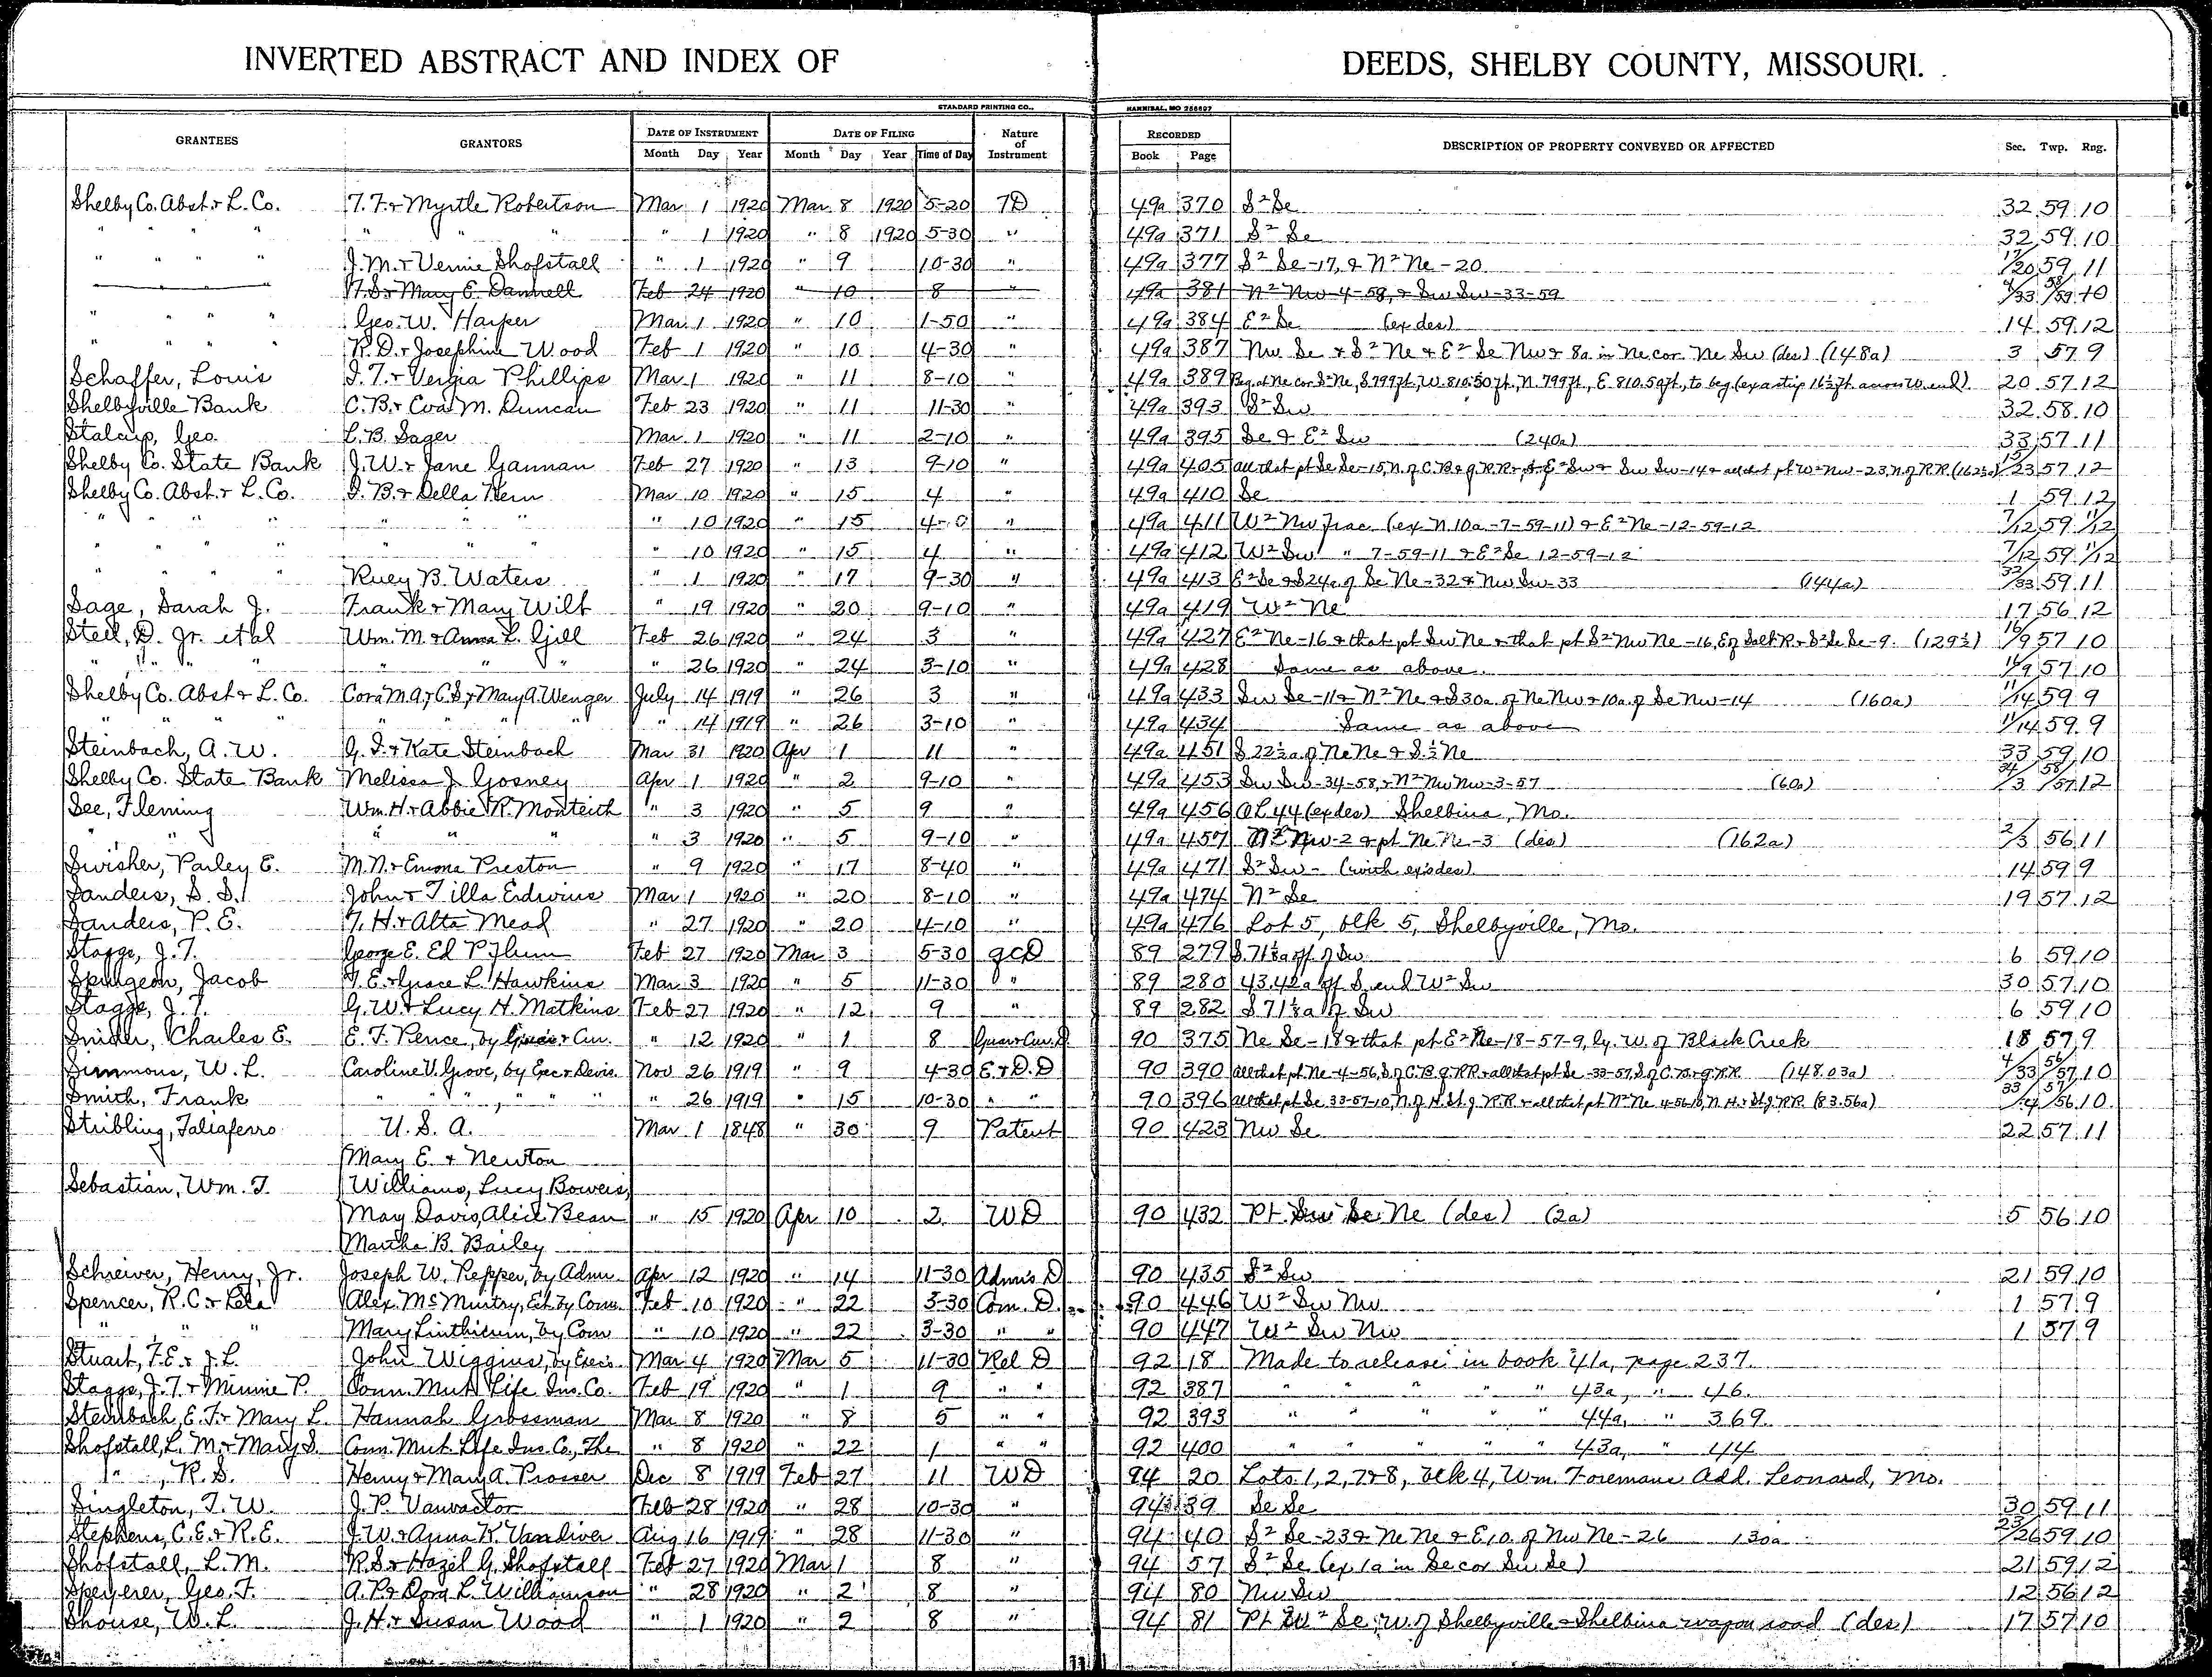 INVERTED ABSTRACT AND INDEX OF DEEDS, SHELBY COUNTY, MISSOURI.
STANDARD PRINTING CO., HANNIBAL, MO 256697
GRANTEES GRANTORS DATE OF INSTRUMENT DATE OF FILING Nature of Instrument RECORDED DESCRIPTION OF PROPERTY CONVEYED OR AFFECTED Sec. Twp. Rng.
Month Day Year Month Day Year Time of Day Book Page
Shelby Co. Abst. & L. Co. T. F. & Myrtle Robertson Mar 1 1920 Mar 8 1920 5-20 TD 49a 370 S² Se 32 59 10
" " " " " " " " 1 1920 " 8 1920 5-30 " 49a 371 S² Se 32 59 10
" " " " J. M. & Vernie Shofstall " 1 1920 " 9 10-30 " 49a 377 S² Se-17, & N² Ne-20 17/20 59 11
Mary E. Dannell Feb 24 1920 " 10 8 " 49a 381 N² Nw-4-58, & Sw Sw-33-59 4/33 58/59 10
" " " " Geo. W. Harper Mar 1 1920 " 10 1-50 " 49a 384 E² Se (ex des) 14 59 12
" " " " R. D. & Josephine Wood Feb 1 1920 " 10 4-30 " 49a 387 Nw Se & S² Ne & E² Se Nw & 8a in Ne cor Ne Sw (des) (148a) 3 57 9
Schaffer, Louis I. T. & Vergia Phillips Mar 1 1920 " 11 8-10 " 49a 389 Beg. at Ne cor S² Ne, S. 799ft, W. 810.50ft, N. 799ft, E. 810.50ft, to beg. (ex a strip 16½ft across W. end) 20 57 12
Shelbyville Bank C. B. & Eva M. Duncan Feb 23 1920 " 11 11-30 " 49a 393 S² Sw 32 58 10
Stalcup, Geo. L. B. Sager Mar 1 1920 " 11 2-10 " 49a 395 Se & E² Sw (240a) 33 57 11
Shelby Co. State Bank J. W. & Jane Gannan Feb 27 1920 " 13 9-10 " 49a 405 all that pt Se Se-15, N. of C. B. & Q. RR & E² Sw & Sw Sw-14 & all that pt W² Nw-23, N. of R.R. 23 57 12
Shelby Co. Abst. & L. Co. I. B. & Della Kern Mar 10 1920 " 15 4 " 49a 410 Se 1 59 12
" " " " " " " " 10 1920 " 15 4-0 " 49a 411 W² Nw frac (ex N. 10a-7-59-11) & E² Ne-12-59-12 7/12 59 11/12
" " " " " " " " 10 1920 " 15 4 " 49a 412 W² Sw " 7-59-11 & E² Se 12-59-12 7/12 59 11/12
" " " " Ruey B. Waters " 1 1920 " 17 9-30 " 49a 413 E² Se & S24a of Se Ne-32 & Nw Sw-33 (144a) 32/33 59 11
Sage, Sarah J. Frank & Mary Wilt " 19 1920 " 20 9-10 " 49a 419 W² Ne 17 56 12
Steel, D. Jr. et al Wm. M. & Anna L. Gill Feb 26 1920 " 24 3 " 49a 427 E² Ne-16 & that pt Sw Ne & that pt S² Nw Ne-16, E of Salt R & S² Se Se-9. (129½) 16/9 57 10
" " " " " " " " 26 1920 " 24 3-10 " 49a 428 Same as above. 16/9 57 10
Shelby Co. Abst. & L. Co. Cora M. A., & C. S., & Mary A. Wenger July 14 1919 " 26 3 " 49a 433 Sw Se-11 & N² Ne & S30a of Ne Nw & 10a of Se Nw-14 (160a) 11/14 59 9
" " " " " " " " " 14 1919 " 26 3-10 " 49a 434 Same as above 11/14 59 9
Steinbach, A. W. G. I. & Kate Steinbach Mar 31 1920 Apr 1 11 " 49a 451 S 22½a of Ne Ne & S½ Ne 33 59 10
Shelby Co. State Bank Melissa J. Gosney Apr 1 1920 " 2 9-10 " 49a 453 Sw Sw-34-58 & N² Nw Nw-3-57 (60a) 34/3 58/57 12
See, Fleming Wm. H. & Abbie R. Monteith " 3 1920 " 5 9 " 49a 456 OL 44 (ex des) Shelbina, Mo.
" " " " " " 3 1920 " 5 9-10 " 49a 457 N² Nw-2 & pt Ne Ne-3 (des) (162a) 2/3 56 11
Swisher, Parley E. M. N. & Emma Preston " 9 1920 " 17 8-40 " 49a 471 S² Sw - (with ex & des) 14 59 9
Sanders, S. S. John & Tilla Edwins Mar 1 1920 " 20 8-10 " 49a 474 N² Se 19 57 12
Sanders, P. E. T. H. & Alta Mead " 27 1920 " 20 4-10 " 49a 476 Lot 5, blk 5, Shelbyville, Mo.
Staggs, J. T. George E. Ed Pflum Feb 27 1920 Mar 3 5-30 QCD 89 279 S. 71⅛a off of Sw 6 59 10
Spurgeon, Jacob T. E. & Grace L. Hawkins Mar 3 1920 " 5 11-30 " " 89 280 43.42a off S. end W² Sw 30 57 10
Staggs, J. T. G. W. & Lucy H. Matkins Feb 27 1920 " 12 9 " 89 282 S 71⅛a of Sw 6 59 10
Snider, Charles E. E. F. Pence, by Guar & Cur. " 12 1920 " 1 8 Guar & Cur. D 90 375 Ne Se-18 & that pt E² Ne-18-57-9, ly. W. of Black Creek 18 57 9
Simmons, W. L. Caroline V. Grove, by Exec & Devis. Nov 26 1919 " 9 4-30 E. & D. D 90 390 all that pt Ne-4-56, S. of C. B. Q. RR & all that pt Se-33-57, S. of C. B. & Q. RR. (148.03a) 4/33 56/57 10
Smith, Frank " " " " " " 26 1919 " 15 10-30 " " 90 396 all that pt Se 33-57-10, N. of H. & St. J. RR & all that pt N² Ne 4-56-10, N. H. & St. J. RR. (83.56a) 33/4 57/56 10
Stribling, Taliaferro U. S. A. Mar 1 1848 " 30 9 Patent 90 423 Nw Se 22 57 11
Mary E. & Newton
Sebastian, Wm. T. Williams, Lucy Bowers,
May Davis, Alice Bean " 15 1920 Apr 10 2 WD 90 432 Pt. Se Ne (des) (2a) 5 56 10
Martha B. Bailey
Schreiver, Henry, Jr. Joseph W. Pepper, by Adm. Apr 12 1920 " 14 11-30 Adm's D 90 435 S² Sw 21 59 10
Spencer, R. C. & Lela Alex McMurtry, Est. by Com. Feb 10 1920 " 22 3-30 Com. D. 90 446 W² Sw Nw 1 57 9
" " " Mary Linthicum, by Com " 10 1920 " 22 3-30 " " 90 447 W² Sw Nw 1 57 9
Stuart, F. E. & J. L. John Wiggins, by Exec's Mar 4 1920 Mar 5 11-30 Rel D 92 18 Made to release in book 41a, page 237.
Staggs, J. T. & Minnie P. Conn. Mut. Life Ins. Co. Feb 19 1920 " 1 9 " " 92 387 " " " " " 43a, " 46.
Steinbach, E. F. & Mary L. Hannah Grossman Mar 8 1920 " 8 5 " " 92 393 " " " " " 44a, " 369.
Shofstall, L. M. & Mary S. Conn. Mut. Life Ins. Co., The " 8 1920 " 22 1 " " 92 400 " " " " " 43a, " 44
" , R. S. Henry & Mary A. Prosser Dec 8 1919 Feb 27 11 WD 94 20 Lots 1, 2, 7 & 8, blk 4, Wm. Foremans Add. Leonard, Mo.
Singleton, T. W. J. P. Vanvactor Feb 28 1920 " 28 10-30 " 94 39 Se Se 30 59 11
Stephens, C. E. & R. E. J. W. & Anna K. Vandiver Aug 16 1919 " 28 11-30 " 94 40 S² Se-23 & Ne Ne & E10 of Nw Ne-26 130a 23/26 59 10
Shofstall, L. M. R. S. & Hazel G. Shofstall Feb 27 1920 Mar 1 8 " 94 57 S² Se (ex 1a in Se cor Sw Se) 21 59 12
Speyerer, Geo. F. A. P. & Dora L. Williamson " 28 1920 " 2 8 " 94 80 Nw Sw 12 56 12
Shouse, W. L. J. H. & Susan Wood " 1 1920 " 2 8 " 94 81 Pt W² Se, W. of Shelbyville & Shelbina wagon road (des) 17 57 10